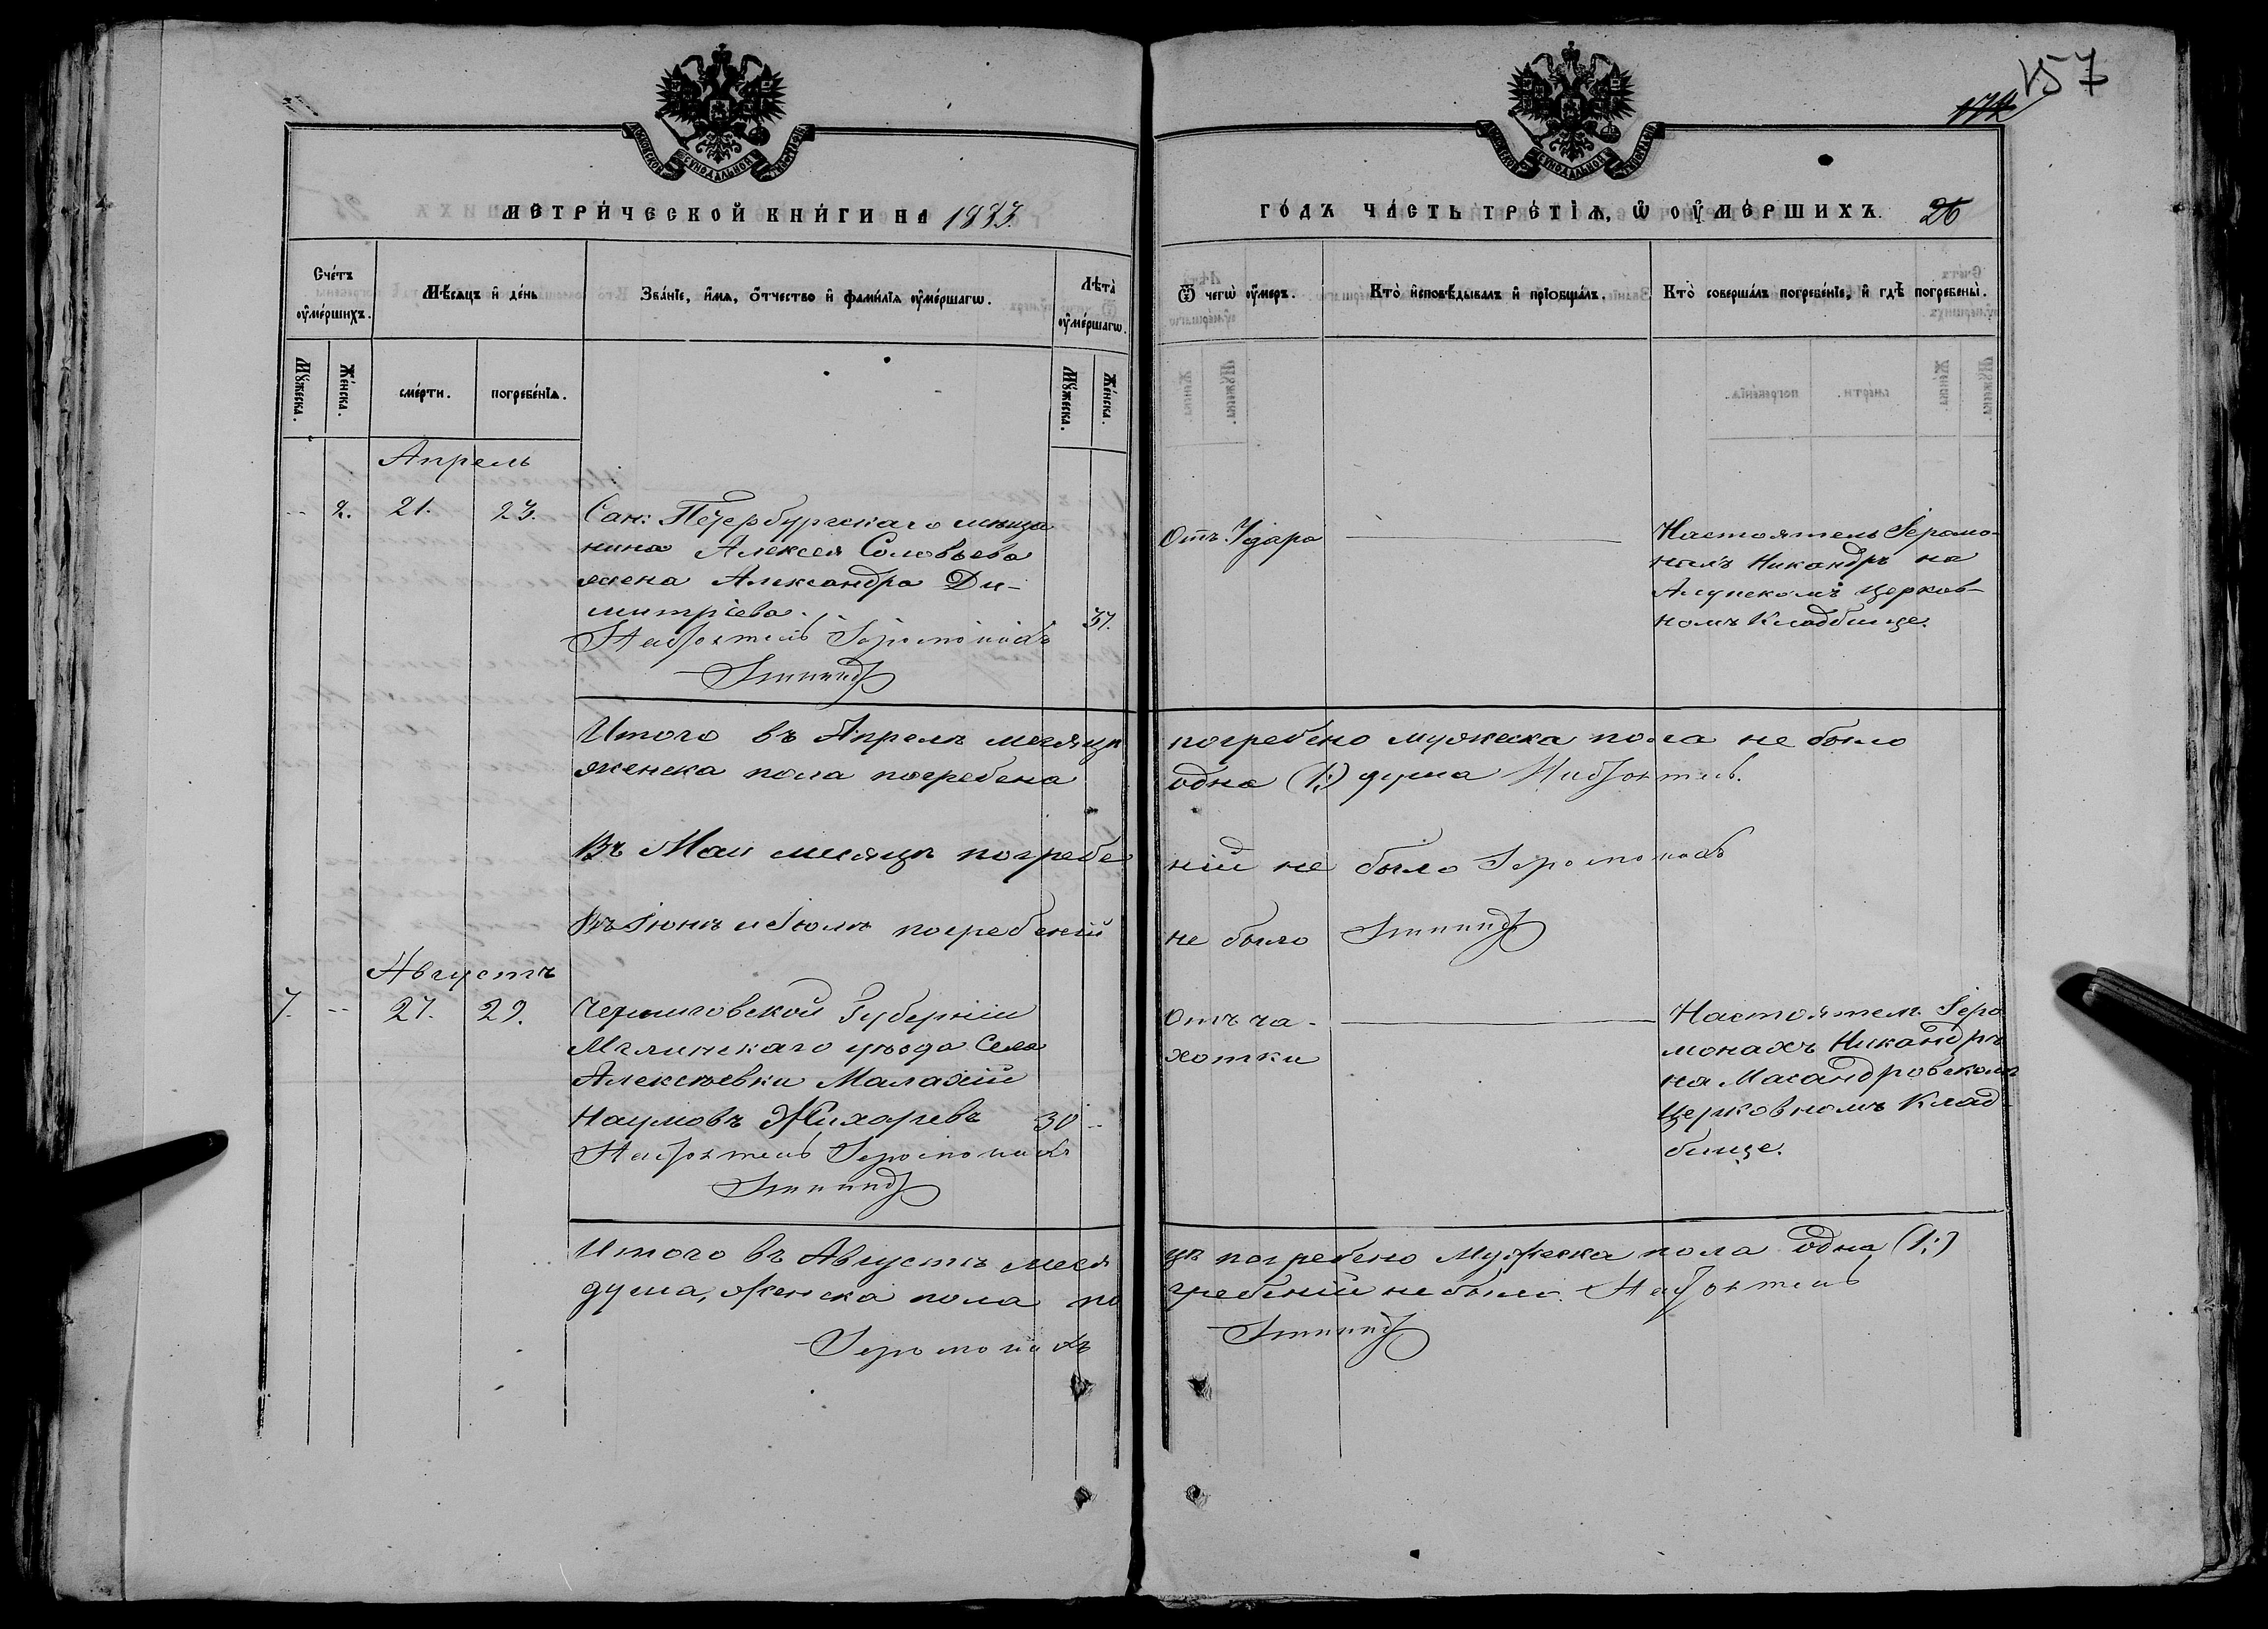 157
МЕТРИ́ЧЕСКОЙ КНИ́ГИ НА 1883.
ГО́ДЪ ЧА́СТЬ ТРЕ́ТІѦ, Ѡ ОУМЕ́РШИХЪ. 26
Сче́тъ оуме́ршихъ.
Мѣ́сяцъ и де́нь
Зва́нїе, и́мѧ, о́тчество и фами́лїѧ оуме́ршагѡ.
Лѣ́та оуме́ршагѡ.
Ѿ чегѡ̀ оу́меръ.
Кто̀ и҆сповѣ́дывалъ и҆ прїобща́лъ.
Кто̀ соверша́лъ погребе́нїе, и҆ гдѣ̀ погребены̀.
Мꙋ́жеска.
Же́нска.
сме́рти.
погребе́нїѧ.
Мꙋ́жеска.
Же́нска.
Апрель
-- 2. 21. 23. Сан: Петербургскаго мѣща
нина Алексея Соловьева
жена Александра Ди-
митріева. 37.
Настоятель Іеромонахъ
Отъ Удара
Настоятель Іеромо-
нахъ Никандръ на
Алупскомъ церков-
номъ Кладбище.
Итого въ Апреле месяце погребено мужеска пола не было
женска пола погребена одна (1:) душа Настоятель
Въ Маи месяце погребе ній не было Іеромонахъ
Въ Іюне и Іюле погребеній не было
Августъ
7. -- 27. 29. Черниговской Губерніи
Мглинскаго уѣзда Села
Алексѣевки Малахій
Наумовъ Жихаревъ 30 --
Настоятель Іеромонахъ
Отъ ча-
хотки
Настоятель Іеро
монахъ Никандръ
на Масандровскомъ
Церковномъ Клад-
бище.
Итого въ Августе меся це погребено Мужеска пола одна (1:)
душа, женска пола по гребеній не было. Настоятель
Іеромонахъ